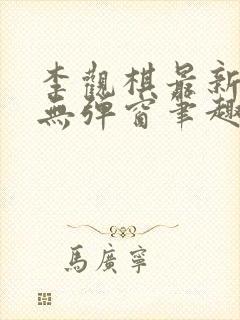 李觀棋最新
無彈窗筆趣
馬廣寧